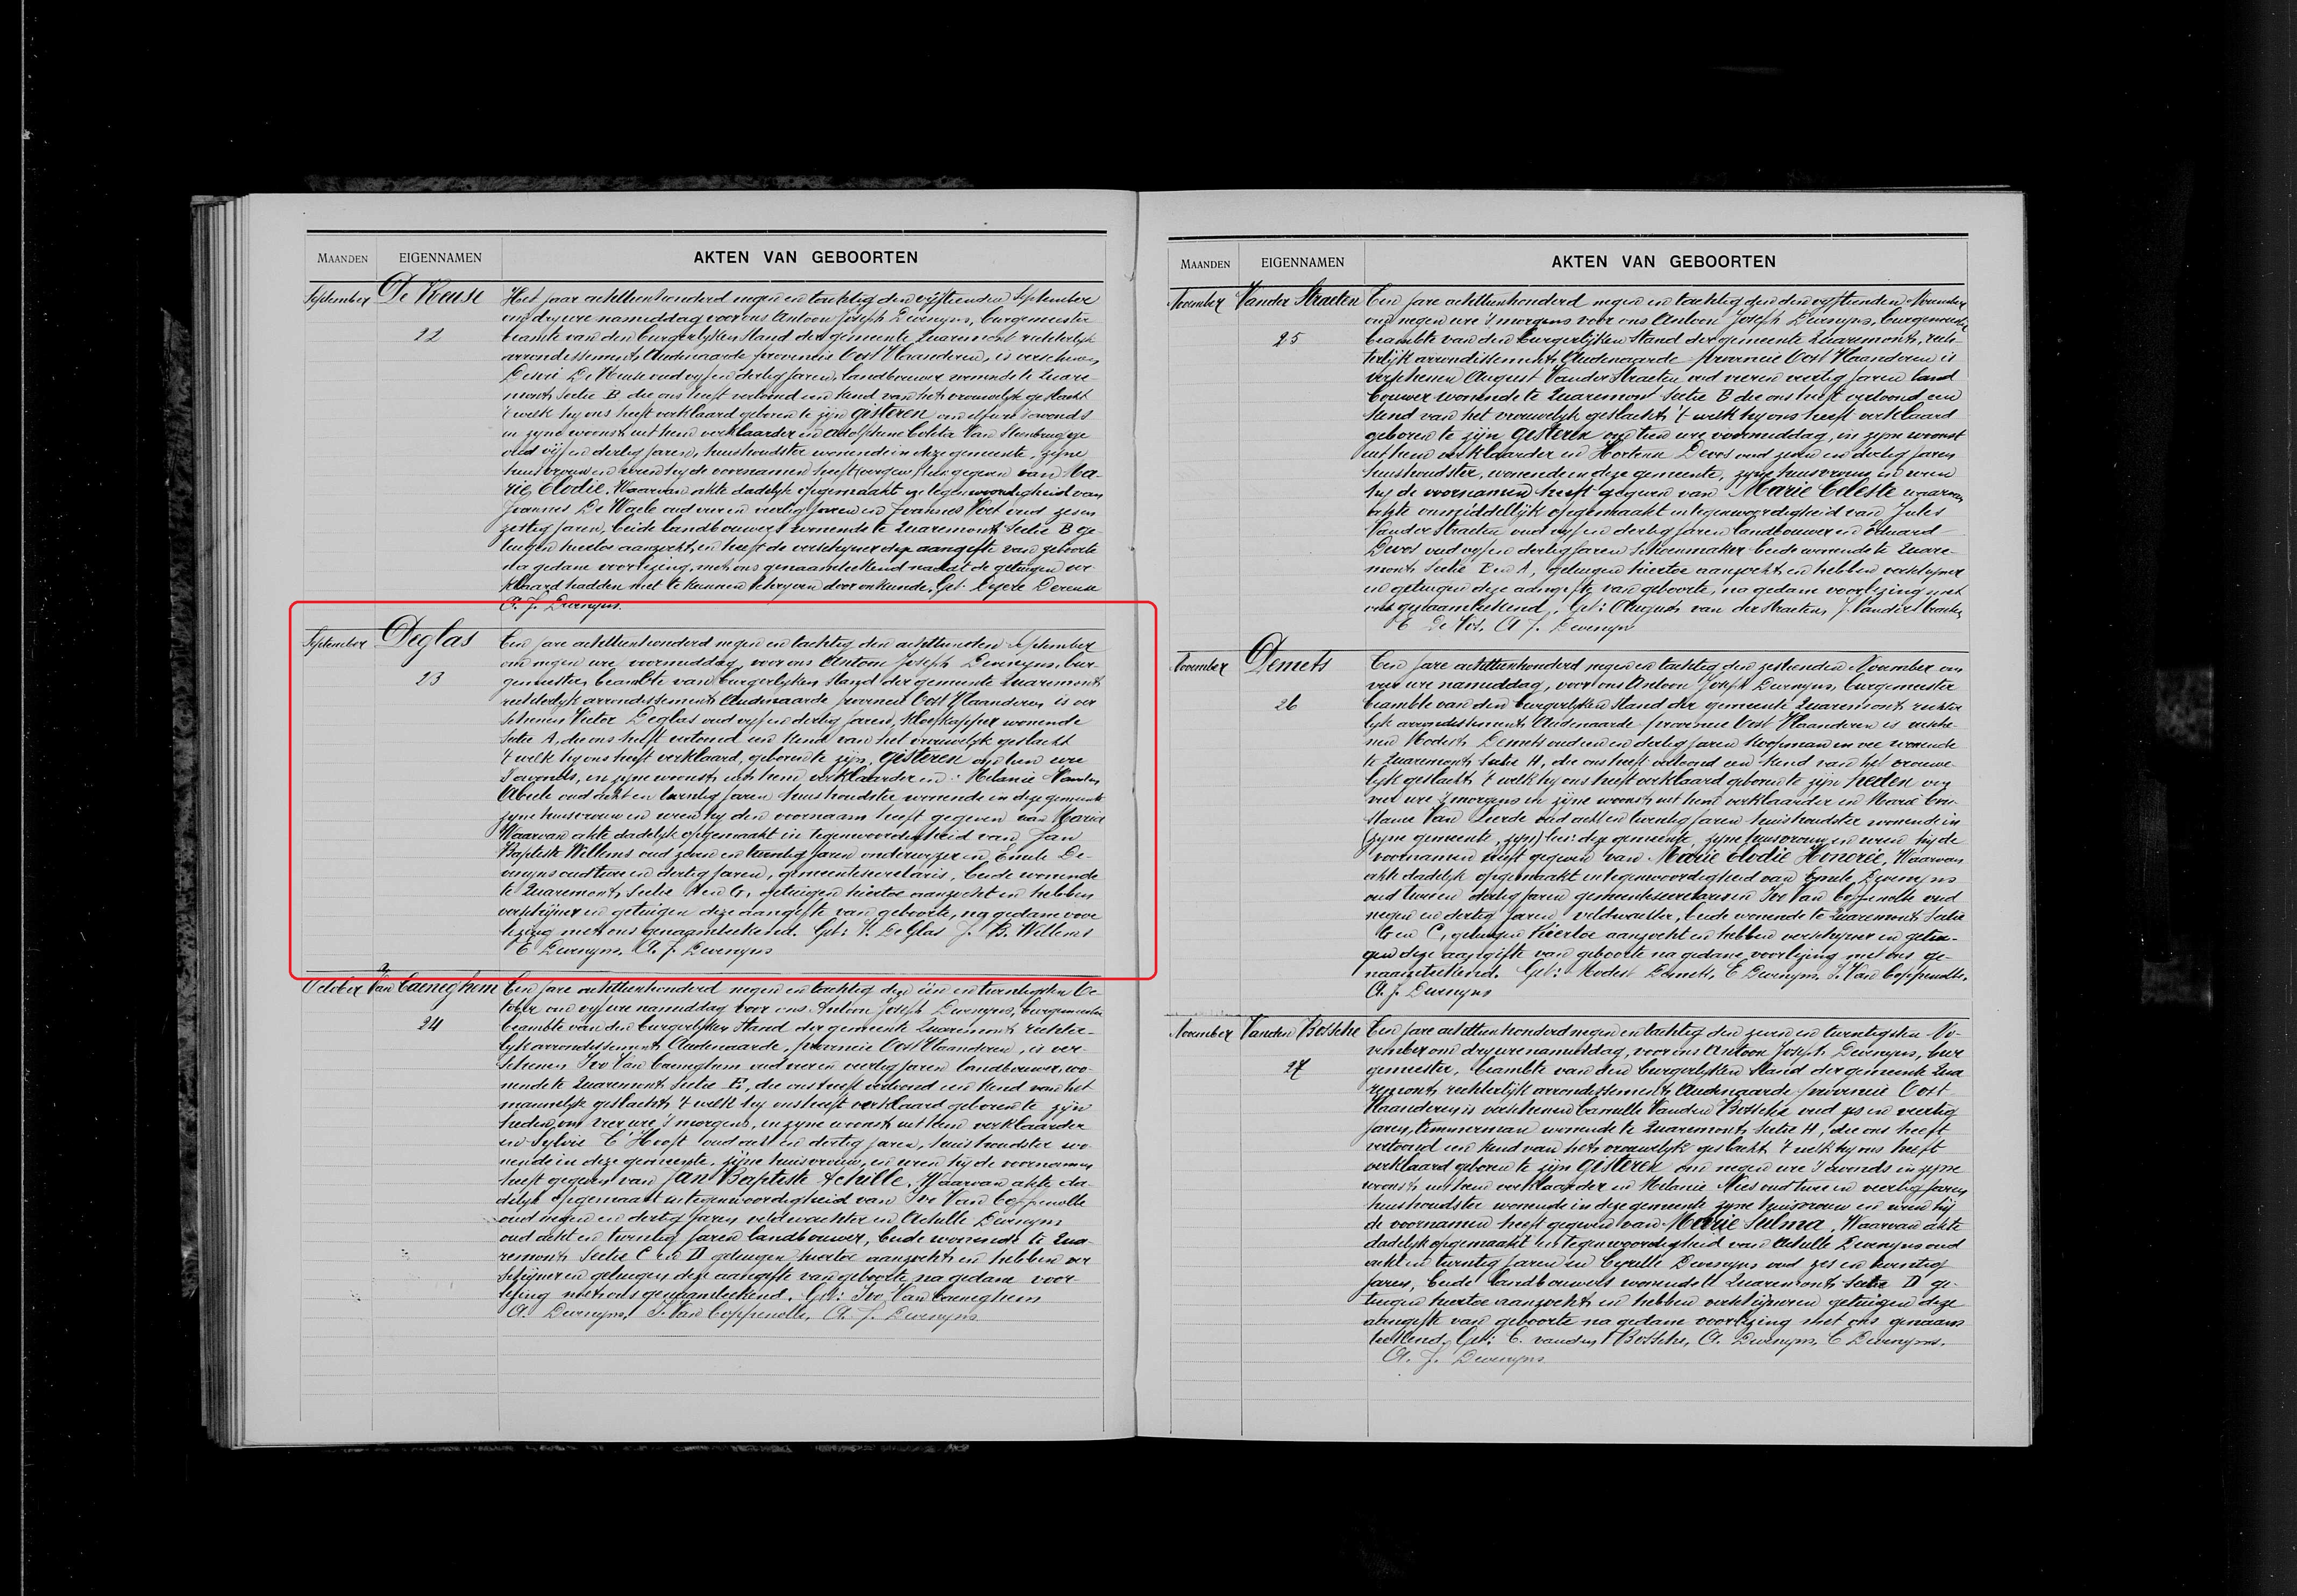 MAANDEN EIGENNAMEN AKTEN VAN GEBOORTEN
September De Keuse Het jaar achttienhonderd negen en tachtig den vijftienden September
om dry ure namiddag voor ons Antoon Joseph Devenyns, burgemeester
22 beamte van den burgerlyken Stand der gemeente Quaremont rechterlyk
arrondissement Audenaarde provincie Oost Vlaanderen, is verschenen
Desiré De Keuse oud vyf en dertig jaren, landbouwer wonende te Quare-
mont Sectie B die ons heeft vertoond een kind van het vrouwelyk geslacht
't welk hy ons heeft verklaard geboren te zyn gisteren om elf ure s'avonds
in zyne woonst uit hem verklaarder en Adolphine Coleta Van Steenbrugge
oud vijf en dertig jaren, huishoudster wonende in deze gemeente, zyne
huisvrouw en wien hy de voornamen heeft gegeven van Ma-
rie Elodie, Waarvan akte dadelyk opgemaakt in tegenwoordigheid van
Joannes De Waele oud vier en veertig jaren en Joannes Voet oud zes en
zestig jaren, beide landbouwers wonende te Quaremont Sectie B ge-
tuigen hiertoe aanzocht, en heeft de verschyner deze aangifte van geboorte
na gedane voorlezing, met ons genaamteekend nadat de getuigen ver-
klaard hadden niet te kunnen schryven door onkunde. Get: Desire Dereuse
A. J. Devenyns
September Deglas Een jare achttienhonderd negen en tachtig den achttiensten September
om negen ure voormiddag, voor ons Antoon Joseph Devenyns, bur-
23 gemeester, beambte van burgerlyken Stand der gemeente Quaremont
rechterlyk arrondissement Audenaarde provincie Oost Vlaanderen is ver
schenen Victor Deglas oud vyf en dertig jaren, kloefkapper wonende
Sectie A, die ons heeft vertoond een kind van het vrouwelyk geslacht
't welk hy ons heeft verklaard, geboren te zyn, gisteren om tien ure
s'avonds, in zyne woonst, uit hem verklaarder en Melanie Vanden
Abeele oud acht en twintig jaren huishoudster wonende in deze gemeente
zyne huisvrouw en wien hy den voornaam heeft gegeven van Marie
Waarvan akte dadelyk opgemaakt in tegenwoordigheid van Jan
Baptiste Willems oud zeven en twintig jaren onderwyzer en Emile De-
venyns oud twee en dertig jaren, gemeentesecretaris, beide wonende
te Quaremont, Sectie A en G, getuigen hiertoe aanzocht en hebben
verschyner en getuigen deze aangifte van geboorte, na gedane voor
lezing met ons genaamteekend. Get: V. De Glas J. B. Willems
E Devenyns, A. J. Devenyns
October Van Caeneghem Een jare achttienhonderd negen en tachtig den een en twintigsten Oc-
tober om vyf ure namiddag voor ons Antoon Joseph Devenyns, burgemeester
24 beambte van den burgerlyken Stand der gemeente Quaremont rechter-
lyk arrondissement Audenaarde, provincie Oost Vlaanderen, is ver-
schenen Ivo Van Caeneghem oud vier en veertig jaren landbouwer, wo-
nende te Quaremont Sectie E, die ons heeft vertoond een kind van het
mannelyk geslacht, 't welk hy ons heeft verklaard geboren te zyn
heden om vier ure 's morgens, in zyne woonst uit hem verklaarder
en Sylvie T'Hooft oud acht en dertig jaren, huishoudster wo-
nende in deze gemeente, zyne huisvrouw, en wien hy de voornamen
heeft gegeven van Jan Baptiste Achille, Waarvan akte da-
delyk opgemaakt in tegenwoordigheid van Ivo Van Coppenolle
oud negen en dertig jaren veldwachter en Achille Devenyns
oud acht en twintig jaren landbouwer, beide wonende te Qua-
remont Sectie C en D getuigen hiertoe aanzocht en hebben ver
schyner en getuigen deze aangifte van geboorte na gedane voor-
lezing met ons genaamteekend. Get: Ivo Van Caeneghem
A. Devenyns, I. Van Coppenolle, A. J. Devenyns
MAANDEN EIGENNAMEN AKTEN VAN GEBOORTEN
November Vander Straeten Een jare achttienhonderd negen en tachtig den den vyftienden November
om negen ure 's morgens voor ons Antoon Joseph Devenyns, burgemeester
25 beambte van den burgerlyken Stand der gemeente Quaremont, rech-
terlyk arrondissement Audenaarde provincie Oost Vlaanderen is
verschenen August Vander Straeten oud vier en veertig jaren land
bouwer wonende te Quaremont Sectie B die ons heeft vertoond een
kind van het vrouwelyk geslacht 't welk hy ons heeft verklaard
geboren te zyn gisteren om tien ure voormiddag, in zyne woonst
uit hem verklaarder en Hortense Devos oud zeven en dertig jaren
huishoudster, wonende in deze gemeente, zyne huisvrouw, en wien
hy de voornamen heeft gegeven van Marie Celeste waarvan
akte onmiddellyk opgemaakt in tegenwoordigheid van Jules
Vander Straeten oud vyf en dertig jaren landbouwer en Eduard
Devos oud vyf en dertig jaren schoenmaker beide wonende te Quare-
mont Sectie B en A, getuigen hiertoe aanzocht en hebben verschyner
en getuigen deze aangifte van geboorte, na gedane voorlezing met
ons genaamteekend. Get: August van der Straeten, J. Vander Straeten
E De Vos, A J. Devenyns
November Demets Een jare achttienhonderd negen en tachtig den zestienden November om
vier ure namiddag, voor ons Antoon Joseph Devenyns, burgemeester
26 beambte van den burgerlyken Stand der gemeente Quaremont, rechter
lyk arrondissement Audenaarde provincie Oost Vlaanderen is versche-
nen Modest Demets oud een en dertig jaren koopman in vee wonende
te Quaremont Sectie A, die ons heeft vertoond een kind van het vrouwe-
lyk geslacht 't welk hy ons heeft verklaard geboren te zyn heden om
vier ure 's morgens in zyne woonst uit hem verklaarder en Marie Con-
stance Van Lierde oud acht en twintig jaren huishoudster wonende in
(zyne gemeente, zyn) lees: deze gemeente, zyne huisvrouw en wien hy de
voornamen heeft gegeven van Marie Elodie Honorée, Waarvan
akte dadelyk opgemaakt in tegenwoordigheid van Emile Devenyns
oud twee en dertig jaren gemeentesecretaris en Ivo Van Coppenolle oud
negen en dertig jaren veldwachter, beide wonende te Quaremont Sectie
G en C, getuigen hiertoe aanzocht en hebben verschyner en getui-
gen deze aangifte van geboorte na gedane voorlezing met ons ge-
naamteekend. Get: Modest Demets, E Devenyns, I. Van Coppenolle,
A. J. Devenyns
November Vanden Bossche Een jare achttienhonderd negen en tachtig den zeven en twintigsten No-
vember om dry ure namiddag, voor ons Antoon Joseph Devenyns, bur
27 gemeester, beambte van den burgerlyken Stand der gemeente Qua
remont, rechterlyk arrondissement Audenaarde provincie Oost
Vlaanderen is verschenen Camille Vanden Bossche oud zes en veertig
jaren, timmerman wonende te Quaremont, Sectie A, die ons heeft
vertoond een kind van het vrouwelyk geslacht 't welk hy ons heeft
verklaard geboren te zyn gisteren om negen ure s'avonds in zyne
woonst uit hem verklaarder en Melanie Nies oud twee en veertig jaren
huishoudster wonende in deze gemeente zyne huisvrouw en wien hy
de voornamen heeft gegeven van Marie Selma, Waarvan akte
dadelyk opgemaakt in tegenwoordigheid van Achille Devenyns oud
acht en twintig jaren en Cyrille Devenyns oud zes en twintig
jaren, beide landbouwers wonende te Quaremont Sectie D ge-
tuigen hiertoe aanzocht en hebben verschyner en getuigen deze
aangifte van geboorte na gedane voorlezing met ons genaam
teekend. Get: C. vanden Bossche, A. Devenyns, C Devenyns.
A. J. Devenyns